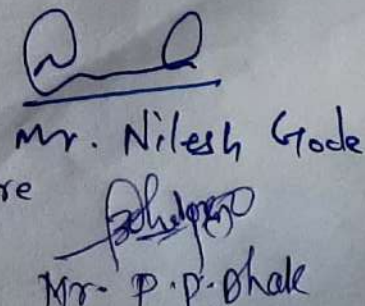 Mr. Nilesh Gode
re
Mr. P.P. Dhak